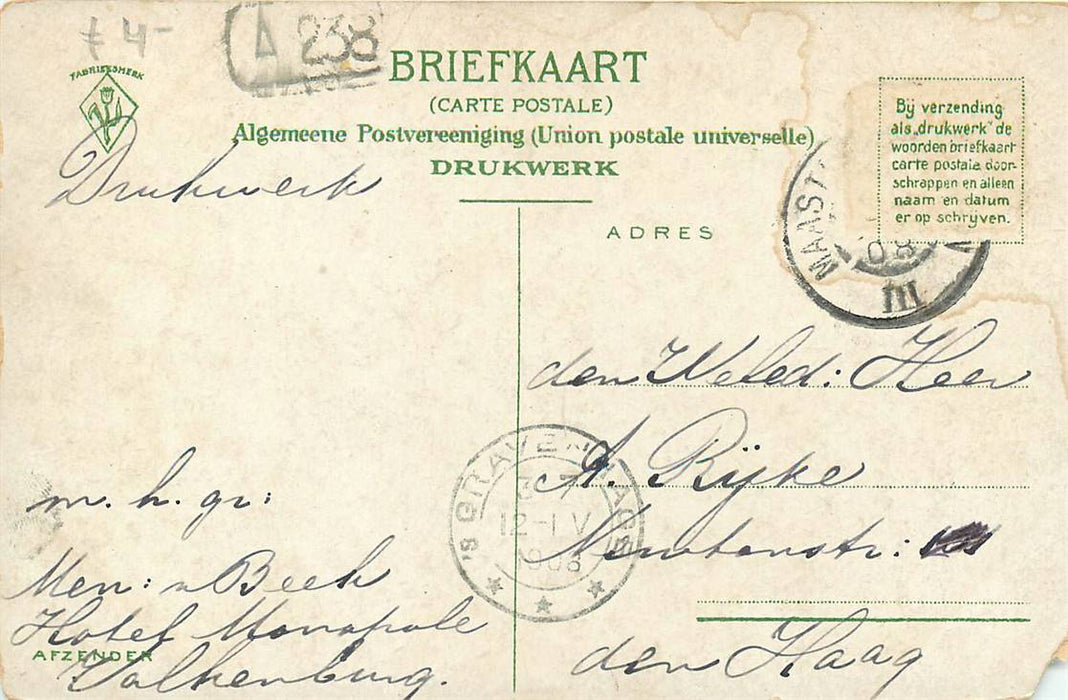 £ 4-
Δ 238
FABRIEKSMERK
BRIEFKAART
(CARTE POSTALE)
Algemeene Postvereeniging (Union postale universelle)
DRUKWERK
Drukwerk
Bij verzending
als „drukwerk" de
woorden briefkaart
carte postale door-
schrappen en alleen
naam en datum
er op schrijven.
ADRES
MAAST
08
III
den Weled: Heer
A. Rijke
Newtonstr:
den Haag
'S GRAVENHAGE
12-1 V
1908
m. h. gr:
Men: v Beek
Hotel Monopole
AFZENDER
Valkenburg.